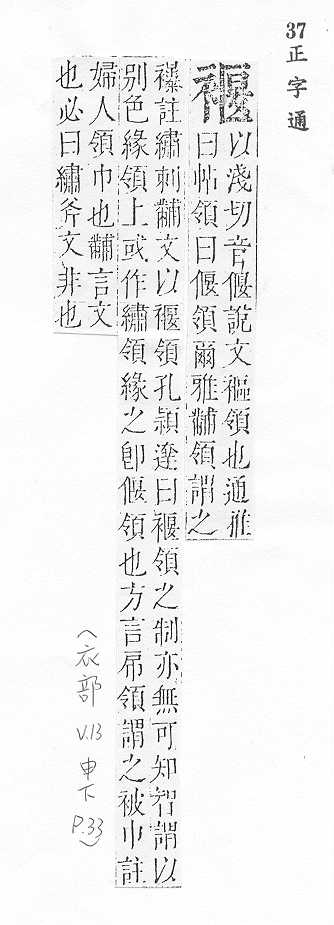 37 正字通
褗 以淺切音偃說文領也通雅
曰帖領曰偃領爾雅黼領謂之
襮註繡刺黼文以褗領孔頴達曰褗領之制亦無可知智謂以
别色緣領上或作繡領緣之卽偃領也方言帍領謂之被巾註
婦人領巾也黼言文
也必曰繡斧文非也
(衣部 V.13 申下 P.33)